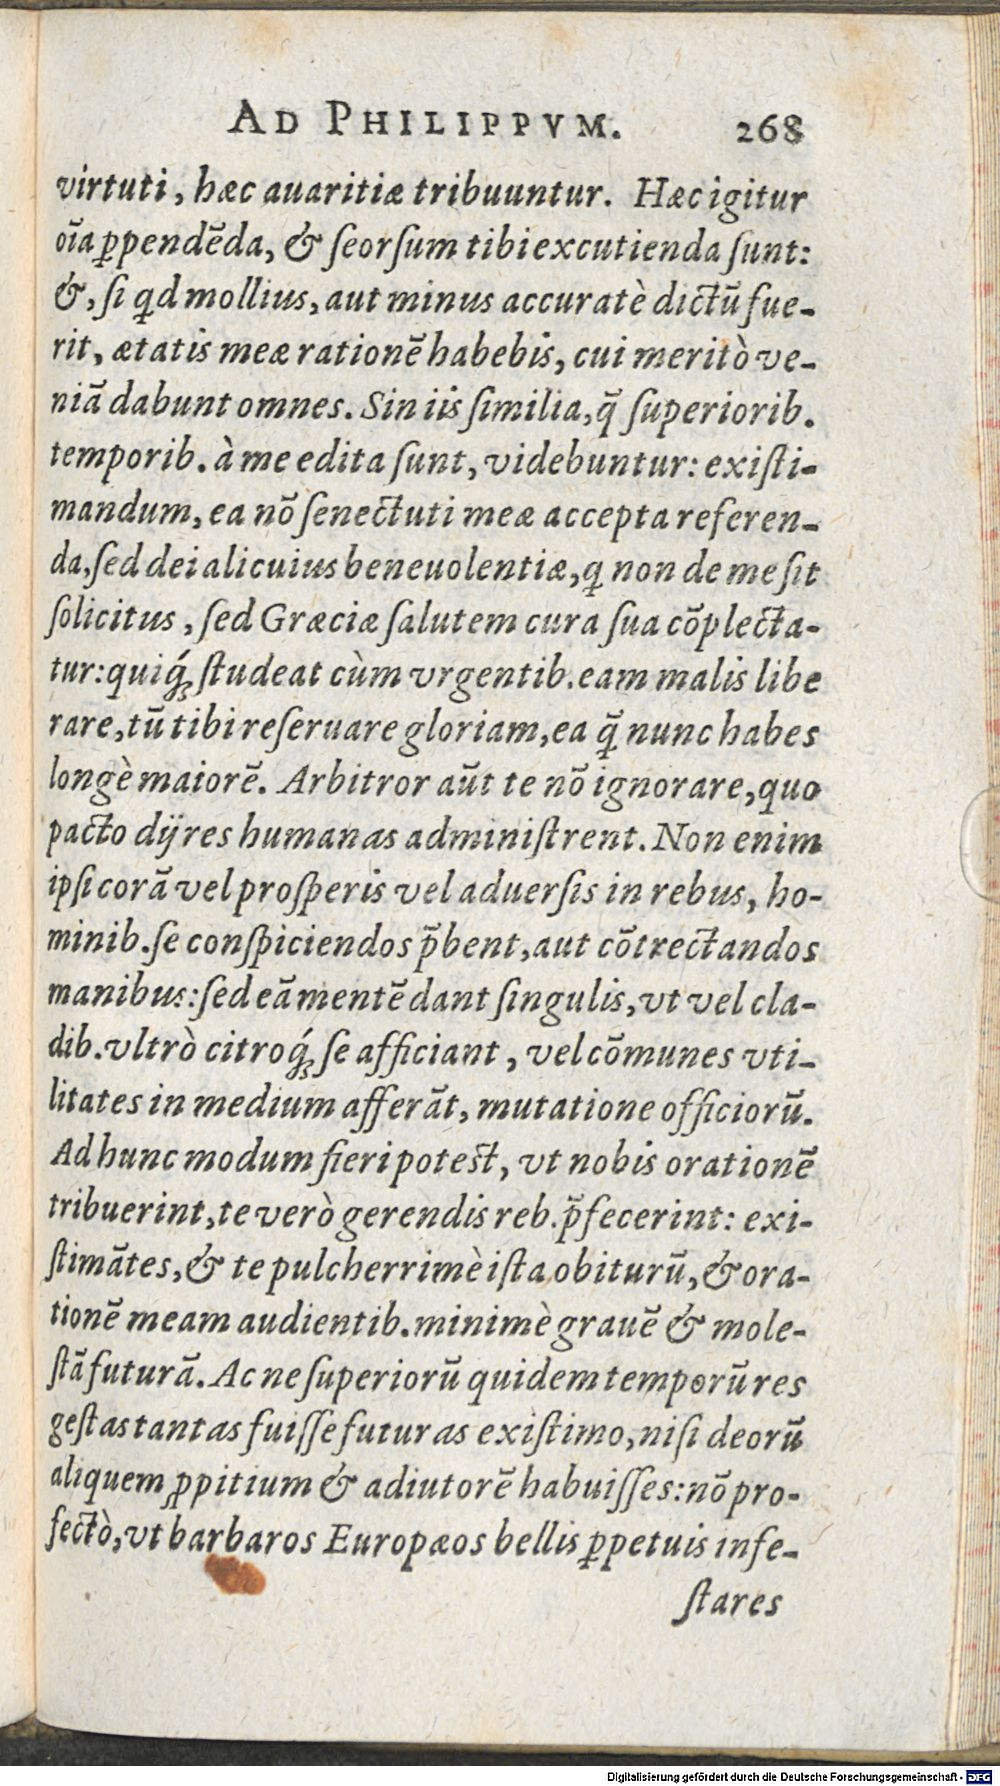 AD PHILIPPVM. 268
virtuti, hæc auaritiæ tribuuntur. Hæc igitur
oĩa ꝑpendẽda, & ſeorſum tibi excutienda ſunt:
&, ſi qd mollius, aut minus accuratè dictũ fue-
rit, ætatis meæ rationẽ habebis, cui meritò ve-
niã dabunt omnes. Sin iis ſimilia, q̃ ſuperiorib.
temporib. à me edita ſunt, videbuntur: exiſti-
mandum, ea nõ ſenectuti meæ accepta referen-
da, ſed dei alicuius beneuolentiæ, q non de me ſit
ſolicitus, ſed Græciæ ſalutem cura ſua cõplecta-
tur: quiq́; ſtudeat cùm vrgentib. eam malis libe
rare, tũ tibi reſeruare gloriam, ea q̃ nunc habes
longè maiorẽ. Arbitror aũt te nõ ignorare, quo
pacto dij res humanas adminiſtrent. Non enim
ipſi corã vel proſperis vel aduerſis in rebus, ho-
minib. ſe conſpiciendos p̃bent, aut cõtrectandos
manibus: ſed eã mentẽ dant ſingulis, vt vel cla-
dib. vltrò citroq́; ſe afficiant, vel cõmunes vti-
litates in medium afferãt, mutatione officiorũ.
Ad hunc modum fieri poteſt, vt nobis orationẽ
tribuerint, te verò gerendis reb. p̃fecerint: exi-
ſtimãtes, & te pulcherrimè iſta obiturũ, & ora-
tionẽ meam audientib. minimè grauẽ & mole-
ſtã futurã. Ac ne ſuperiorũ quidem temporũ res
geſtas tantas fuiſſe futuras exiſtimo, niſi deorũ
aliquem ꝓpitium & adiutorẽ habuiſſes: nõ pro-
fectò, vt barbaros Europæos bellis ꝑpetuis infe-
ſtares
Digitalisierung gefördert durch die Deutsche Forschungsgemeinschaft - DFG